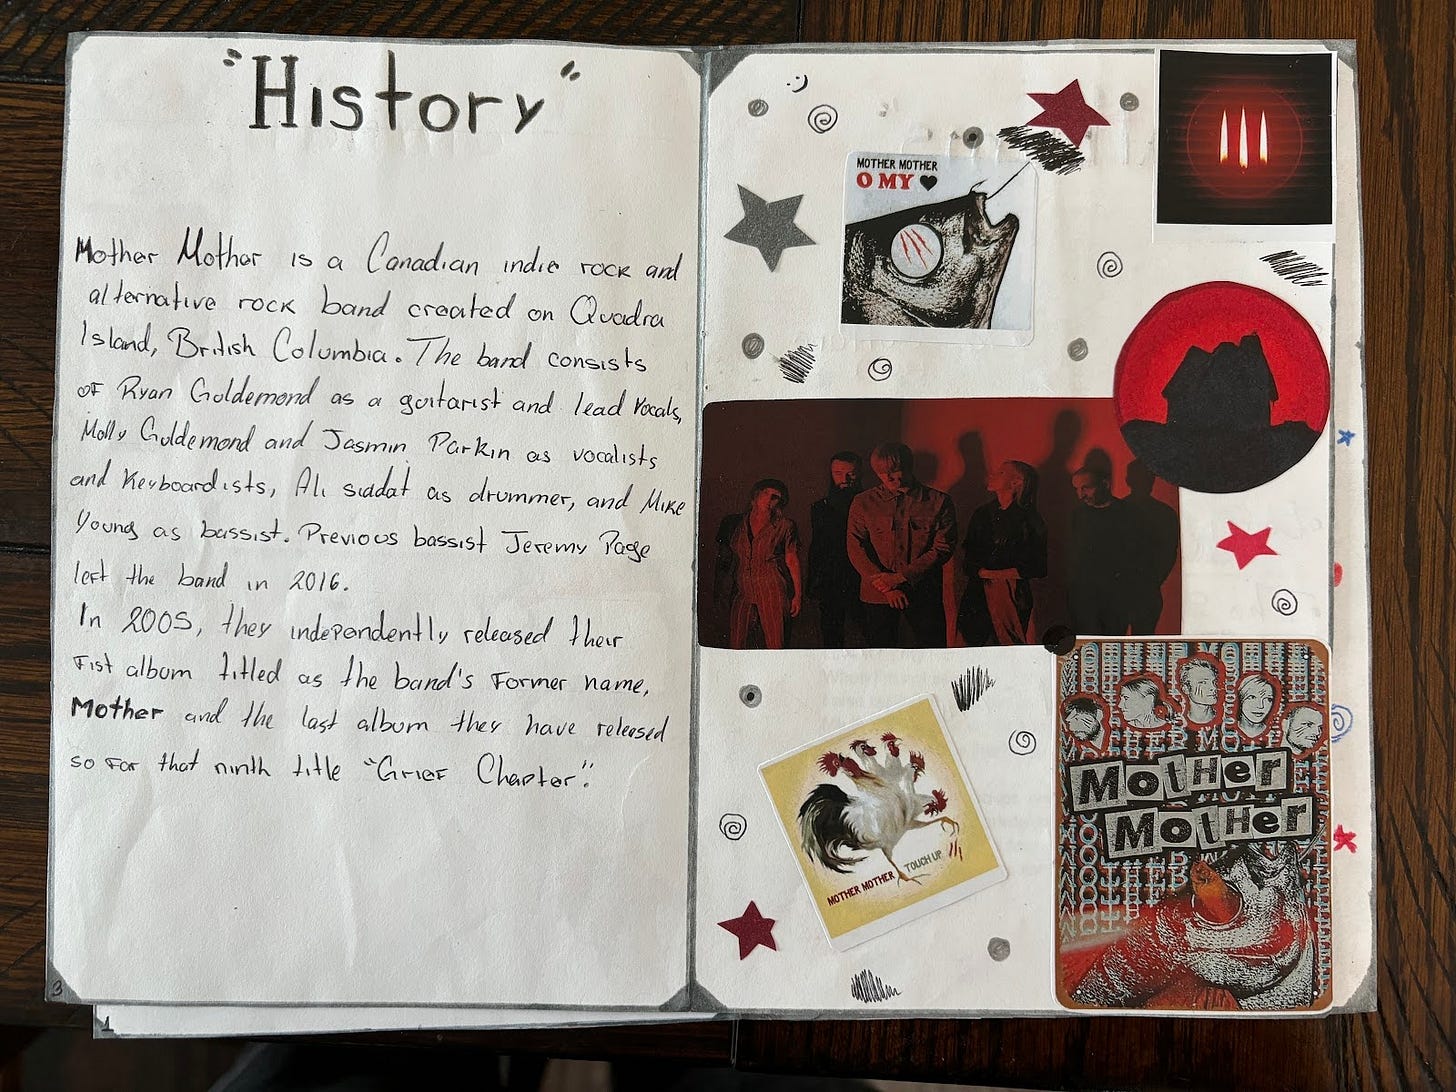 "History"
Mother Mother is a Canadian indie rock and
alternative rock band created on Quadra
Island, British Columbia. The band consists
of Ryan Guldemond as a guitarist and lead vocals,
Molly Guldemond and Jasmin Parkin as vocalists
and keyboardists, Ali siadat as drummer, and Mike
Young as bassist. Previous bassist Jeremy Page
left the band in 2016.
In 2005, they independently released their
fist album titled as the band's former name,
Mother and the last album they have released
so far that ninth title "Grief Chapter".
3
1
MOTHER MOTHER
O MY
MOTHER MOTHER
TOUCH UP
MOTHER
MOTHER